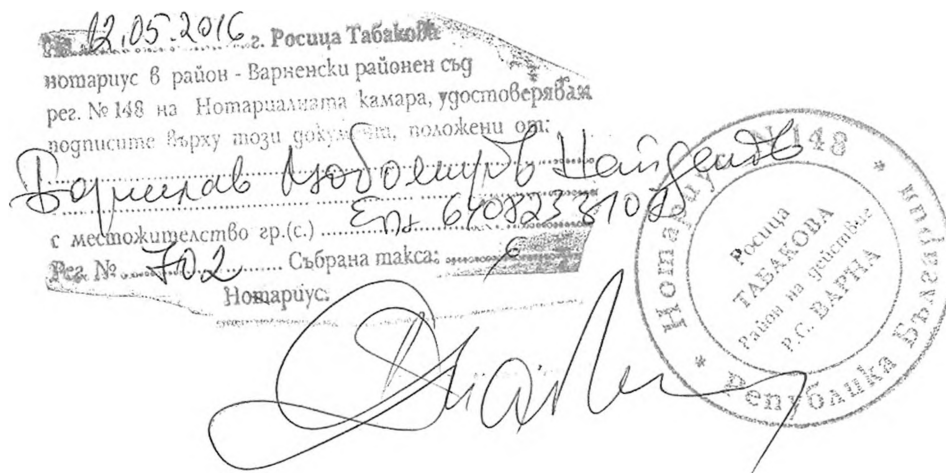 На 12.05.2016 г. Росица Табакова
нотариус в район - Варненски районен съд
рег. № 148 на Нотариалната камара, удостоверявам
подписите върху този документ, положени от:
Борислав Любомиров Найденов
с местожителство гр.(с.) ........ ЕГН
Рег. № 702 Събрана такса:
Нотариус:
Нотариус № 148 * Република България *
Росица
ТАБАКОВА
Район на действие
Р.С. ВАРНА